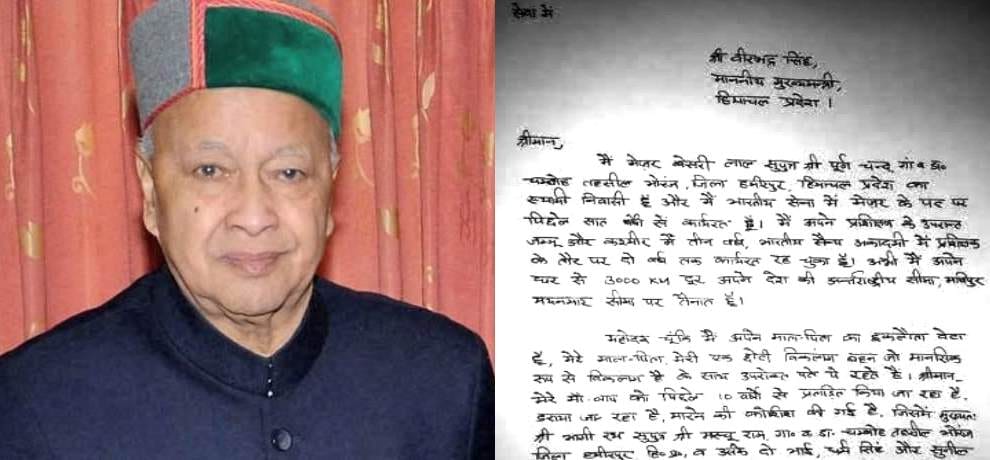 सेवा में
श्री वीरभद्र सिंह,
माननीय मुख्यमन्त्री,
हिमाचल प्रदेश।
श्रीमान,
मैं मेजर केसरी लाल सुपुत्र श्री पूर्ण चन्द, गां॰ व डा॰
चम्बोह तहसील भोरंज, जिला हमीरपुर, हिमाचल प्रदेश का
स्थायी निवासी हूँ और मैं भारतीय सेना में मेजर के पद पर
पिछले सात वर्षों से कार्यरत हूँ। मैं अपने प्रशिक्षण के उपरान्त
जम्मू और कश्मीर में तीन वर्ष, भारतीय सैन्य अकादमी में प्रशिक्षक
के तौर पर दो वर्ष तक कार्यरत रह चुका हूँ। अभी मैं अपने
घर से 3000 KM दूर अपने देश की अर्न्तराष्ट्रीय सीमा, मणिपुर
मयनमार सीमा पर तैनात हूँ।
महोदय चूंकि मैं अपने माता-पिता का इकलौता बेटा
हूँ, मेरे माता-पिता, मेरी एक छोटी विकलांग बहन जो मानसिक
रूप से विकलांग है के साथ उपरोक्त पते पे रहते है। श्रीमान,
मेरे माँ-बाप को पिछले 10 वर्षों से प्रताडित किया जा रहा है,
डराया जा रहा है, मारने की कोशिश की गई है, जिसमें मुख्यतः
श्री भागी रथ सुपुत्र श्री राम, गां॰ व डा॰ चम्बोह तहसील भोरंज
जिला हमीरपुर हि॰प्र॰, व उसके दो भाई, धर्म सिंह और सुनील